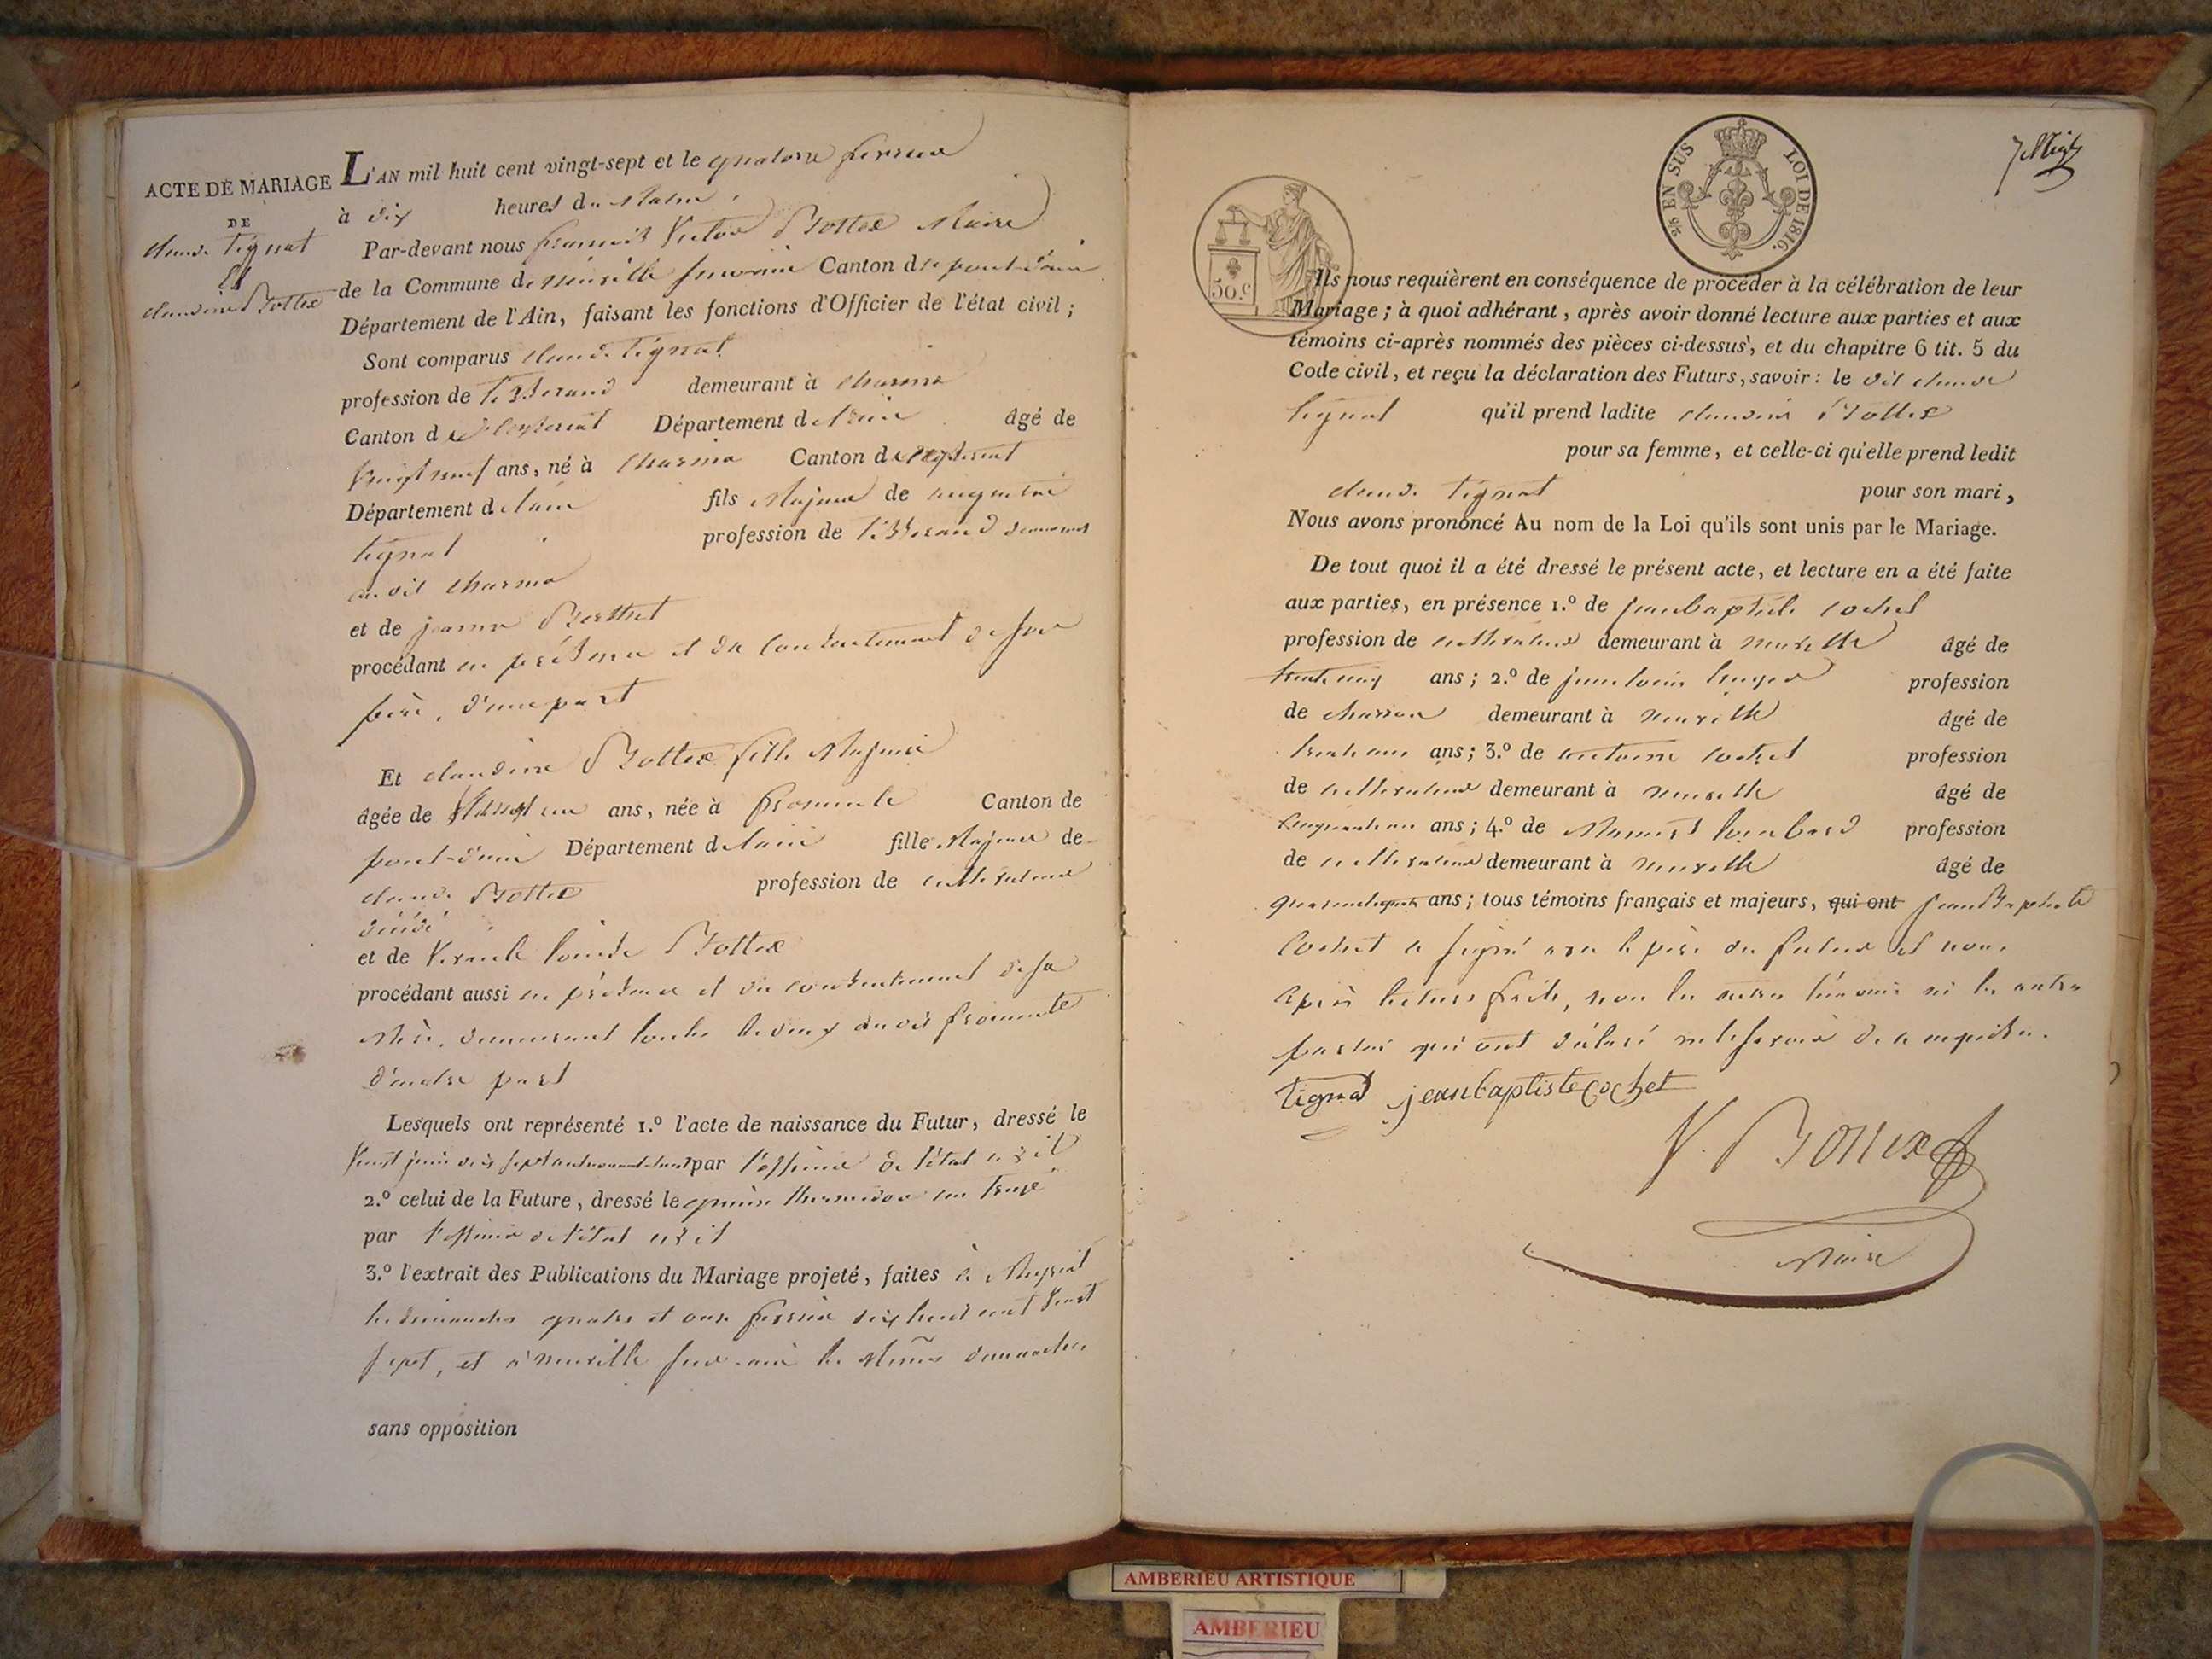 ACTE DE MARIAGE
DE
claude Tignat
Et
claudine Bottex
L'AN mil huit cent vingt-sept et le quatorze fevrier
à dix heures du Matin
Par-devant nous francois Victor Bottex Maire
de la Commune de neuville sur ain Canton de pont-d'ain
Département de l'Ain, faisant les fonctions d'Officier de l'état civil ;
Sont comparus claude Tignat
profession de tisserand demeurant à charma
Canton de Département de l'ain âgé de
vingt neuf ans, né à charma Canton de
Département de l'ain fils Majeur de augustin
tignat profession de tisserand demeurant
au dit charma
et de jeanne Berthet
procédant en présence et du consentement de son
père, d'une part
Et claudine Bottex fille Majeure
âgée de vingt un ans, née à fromente Canton de
pont-d'ain Département de l'ain fille Majeure de
claude Bottex profession de cultivateur
décédé
et de Bottex
procédant aussi en présence et du consentement de sa
Mère, demeurant toutes les deux au dit fromente
d'autre part
Lesquels ont représenté 1.º l'acte de naissance du Futur, dressé le
vingt juin dix sept cent par l'officier de l'état civil
2.º celui de la Future, dressé le quinze thermidor an treize
par l'officier de l'état civil
3.º l'extrait des Publications du Mariage projeté, faites à
les dimanches quatre et onze fevrier dix huit cent vingt
sept, et à neuville sur ain les Mêmes dimanches
sans opposition
2/5 EN SUS LOI DE 1816.
50.c
Ils nous requièrent en conséquence de procéder à la célébration de leur
Mariage ; à quoi adhérant, après avoir donné lecture aux parties et aux
témoins ci-après nommés des pièces ci-dessus, et du chapitre 6 tit. 5 du
Code civil, et reçu la déclaration des Futurs, savoir : le dit claude
tignat qu'il prend ladite claudine Bottex
pour sa femme, et celle-ci qu'elle prend ledit
claude tignat pour son mari,
Nous avons prononcé Au nom de la Loi qu'ils sont unis par le Mariage.
De tout quoi il a été dressé le présent acte, et lecture en a été faite
aux parties, en présence 1.º de jean baptiste cochet
profession de cultivateur demeurant à neuville âgé de
ans ; 2.º de jean louis profession
de charron demeurant à neuville âgé de
trente ans ; 3.º de antoine cochet profession
de cultivateur demeurant à neuville âgé de
ans ; 4.º de lombard profession
de cultivateur demeurant à neuville âgé de
ans ; tous témoins français et majeurs, qui ont jean Baptiste
cochet a signé avec le père du futur et nous
après lecture faite, non les autres témoins ni les autres
parties qui ont déclaré ne le savoir de ce enquis.
tignat jeanbaptiste cochet
V. Bottex
Maire
AMBERIEU ARTISTIQUE
AMBERIEU